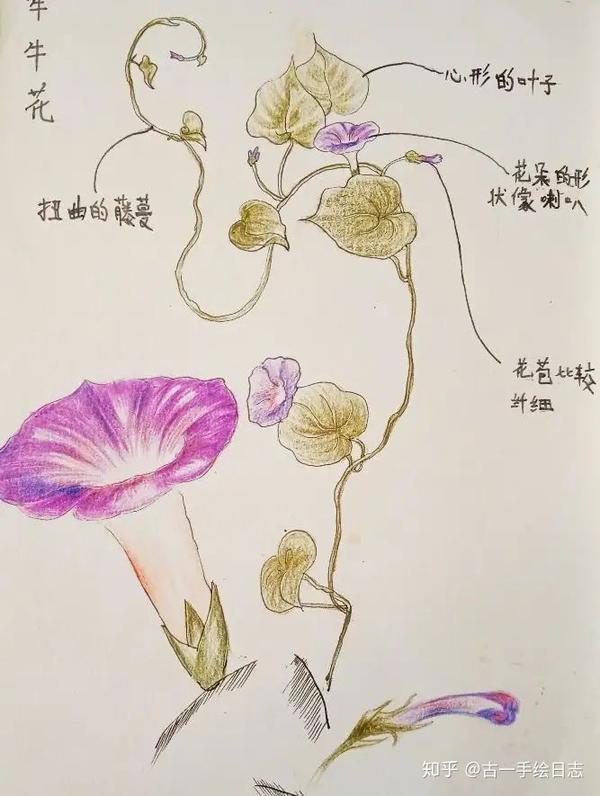 牵牛花
心形的叶子
花朵的形
状像喇叭
扭曲的藤蔓
花苞比较
纤细
知乎 @古一手绘日志